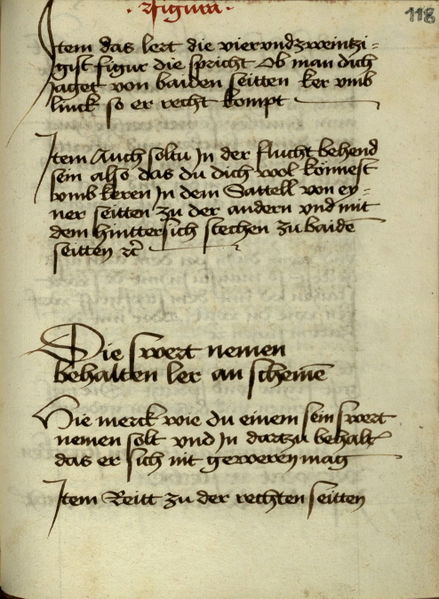 ·Figura·
118
Item das lert die vierundzweintzi=
gist figur die spricht Ob man dich
Jaget von baiden seitten ker vmb
linck so er recht kompt
Item Auch soltu In der flucht behend
sein also das du dich wol könnest
vmb keren In dem Sattell von ey=
ner seitten zu der andern vnd mit
dem hinttersich stechen zu baide
seitten ꝛc̄
Die swert nemen
behalten ler an schemē
Hie merck wie du einem sein swert
nemen solt vnd In dartzu behaltē
das er sich nit geweren mag
Item Reitt zu der rechten seitten